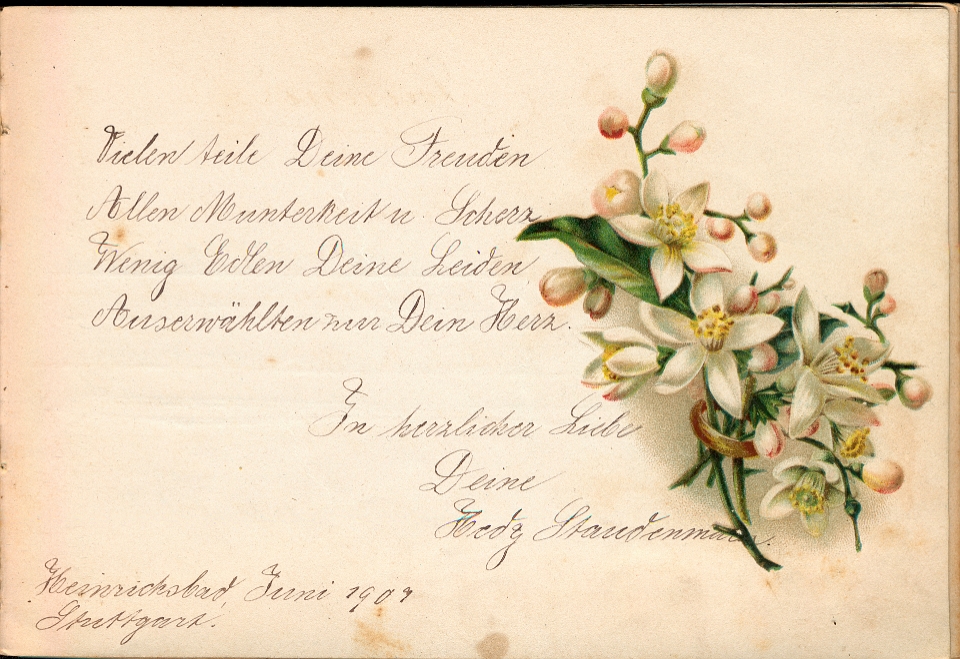 Vielen teile Deine Freuden
Allen Munterkeit u. Scherz
Wenig Edlen Deine Leiden,
Auserwählten nur Dein Herz.
In herzlicher Liebe
Deine
Hedy
Heinrichsbad, Juni 1907
Stuttgart.